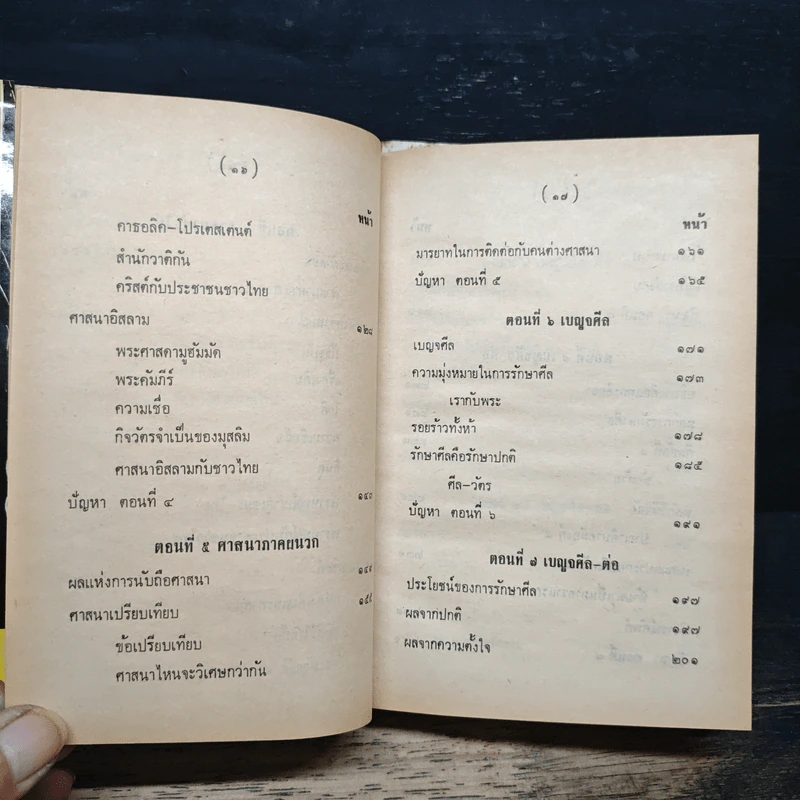 (๑๖)
หน้า
คาธอลิค–โปรเตสเตนต์
สำนักวาติกัน
คริสต์กับประชาชนชาวไทย
ศาสนาอิสลาม ๑๒๘
พระศาสดามูฮัมมัด
พระคัมภีร์
ความเชื่อ
กิจวัตรจำเป็นของมุสลิม
ศาสนาอิสลามกับชาวไทย
ปัญหา ตอนที่ ๔ ๑๔๓
ตอนที่ ๕ ศาสนาภาคผนวก
ผลแห่งการนับถือศาสนา ๑๔๙
ศาสนาเปรียบเทียบ
ข้อเปรียบเทียบ
ศาสนาไหนจะวิเศษกว่ากัน
(๑๗)
หน้า
มารยาทในการติดต่อกับคนต่างศาสนา ๑๖๑
ปัญหา ตอนที่ ๕ ๑๖๕
ตอนที่ ๖ เบญจศีล
เบญจศีล ๑๗๑
ความมุ่งหมายในการรักษาศีล ๑๗๓
เรากับพระ
รอยร้าวทั้งห้า ๑๗๘
รักษาศีลคือรักษาปกติ ๑๘๕
ศีล–วัตร
ปัญหา ตอนที่ ๖ ๑๙๑
ตอนที่ ๗ เบญจศีล–ต่อ
ประโยชน์ของการรักษาศีล ๑๙๗
ผลจากปกติ ๑๙๗
ผลจากความตั้งใจ ๒๐๑